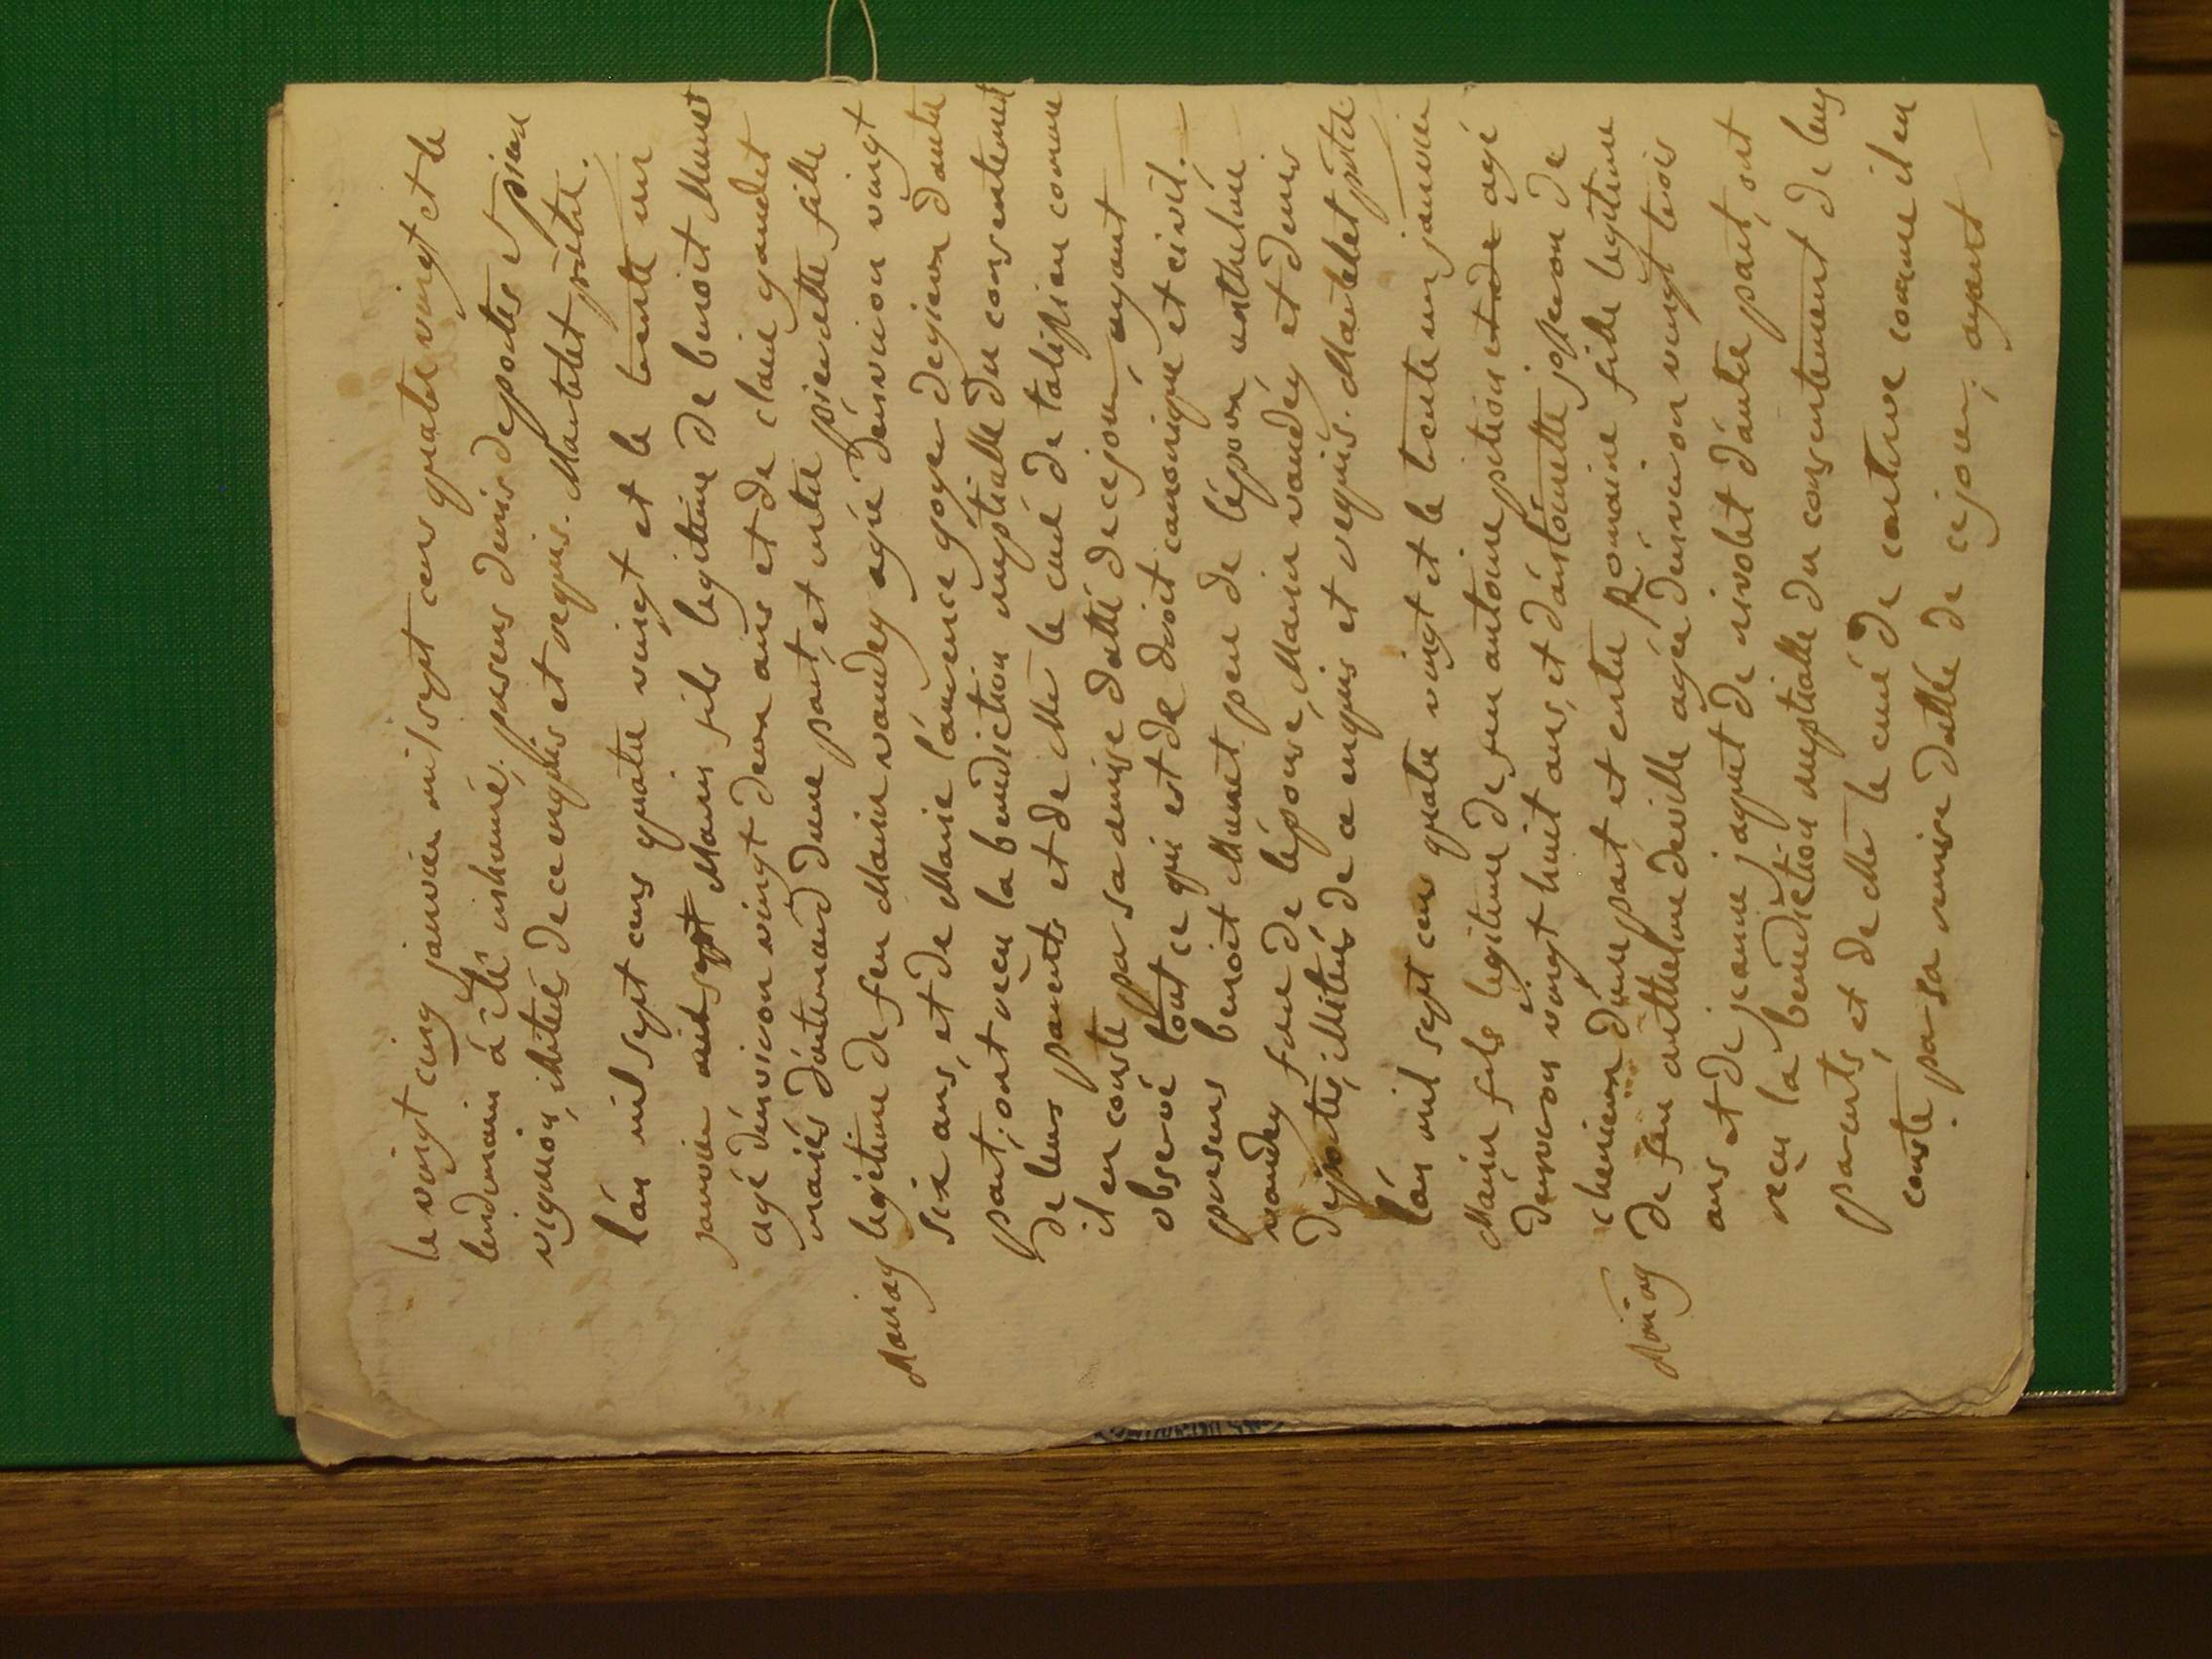 le vingt cinq janvier mil sept cens quatre vingt et le
lendemain à été inhumé, presens denis deportes et pierre
vignon, illiterés de ce enquis et requis. Mantelet prêtre.
l'án mil sept cens quatre vingt et le trente un
janvier mil sept Marin fils legitime de benoit Munet
agé d'environ vingt deux ans et de claire gandet
mariés d'autemard d'une part, et entre pierrette fille
Mariag legitime de feu Marin vaudey agée d'environ vingt
six ans, et de Marie laurence goyer d'autre
part; ont reçu la benediction nuptialle du consentement
de leurs parents et de Mre le curé de talissieu comme
il en conste par sa demise dattée de ce jour, ayant
observé tout ce qui est de droit canonique et civil.
presens benoit Munet pere de l'époux
vaudey frere de l'épouse, Marin vaudey et denis
deportes, illiterés de ce enquis et requis. Mantelet prêtre
l'án mil sept cens quatre vingt et le trente un janvier
Marin fils legitime de feu antoine pition et de agé
d'environ vingt huit ans, et d'antoinette josseron de
cheniron d'une part et entre Romaine fille legitime
Mariag de feu antthelme deville agée d'environ vingt trois
ans et de jeanne jaquet de nivolet d'autre part, ont
reçu la benediction nuptialle du consentement de leurs
parents, et de Mre le curé de contreve comme il en
conste par sa remise dattée de ce jour; ayant